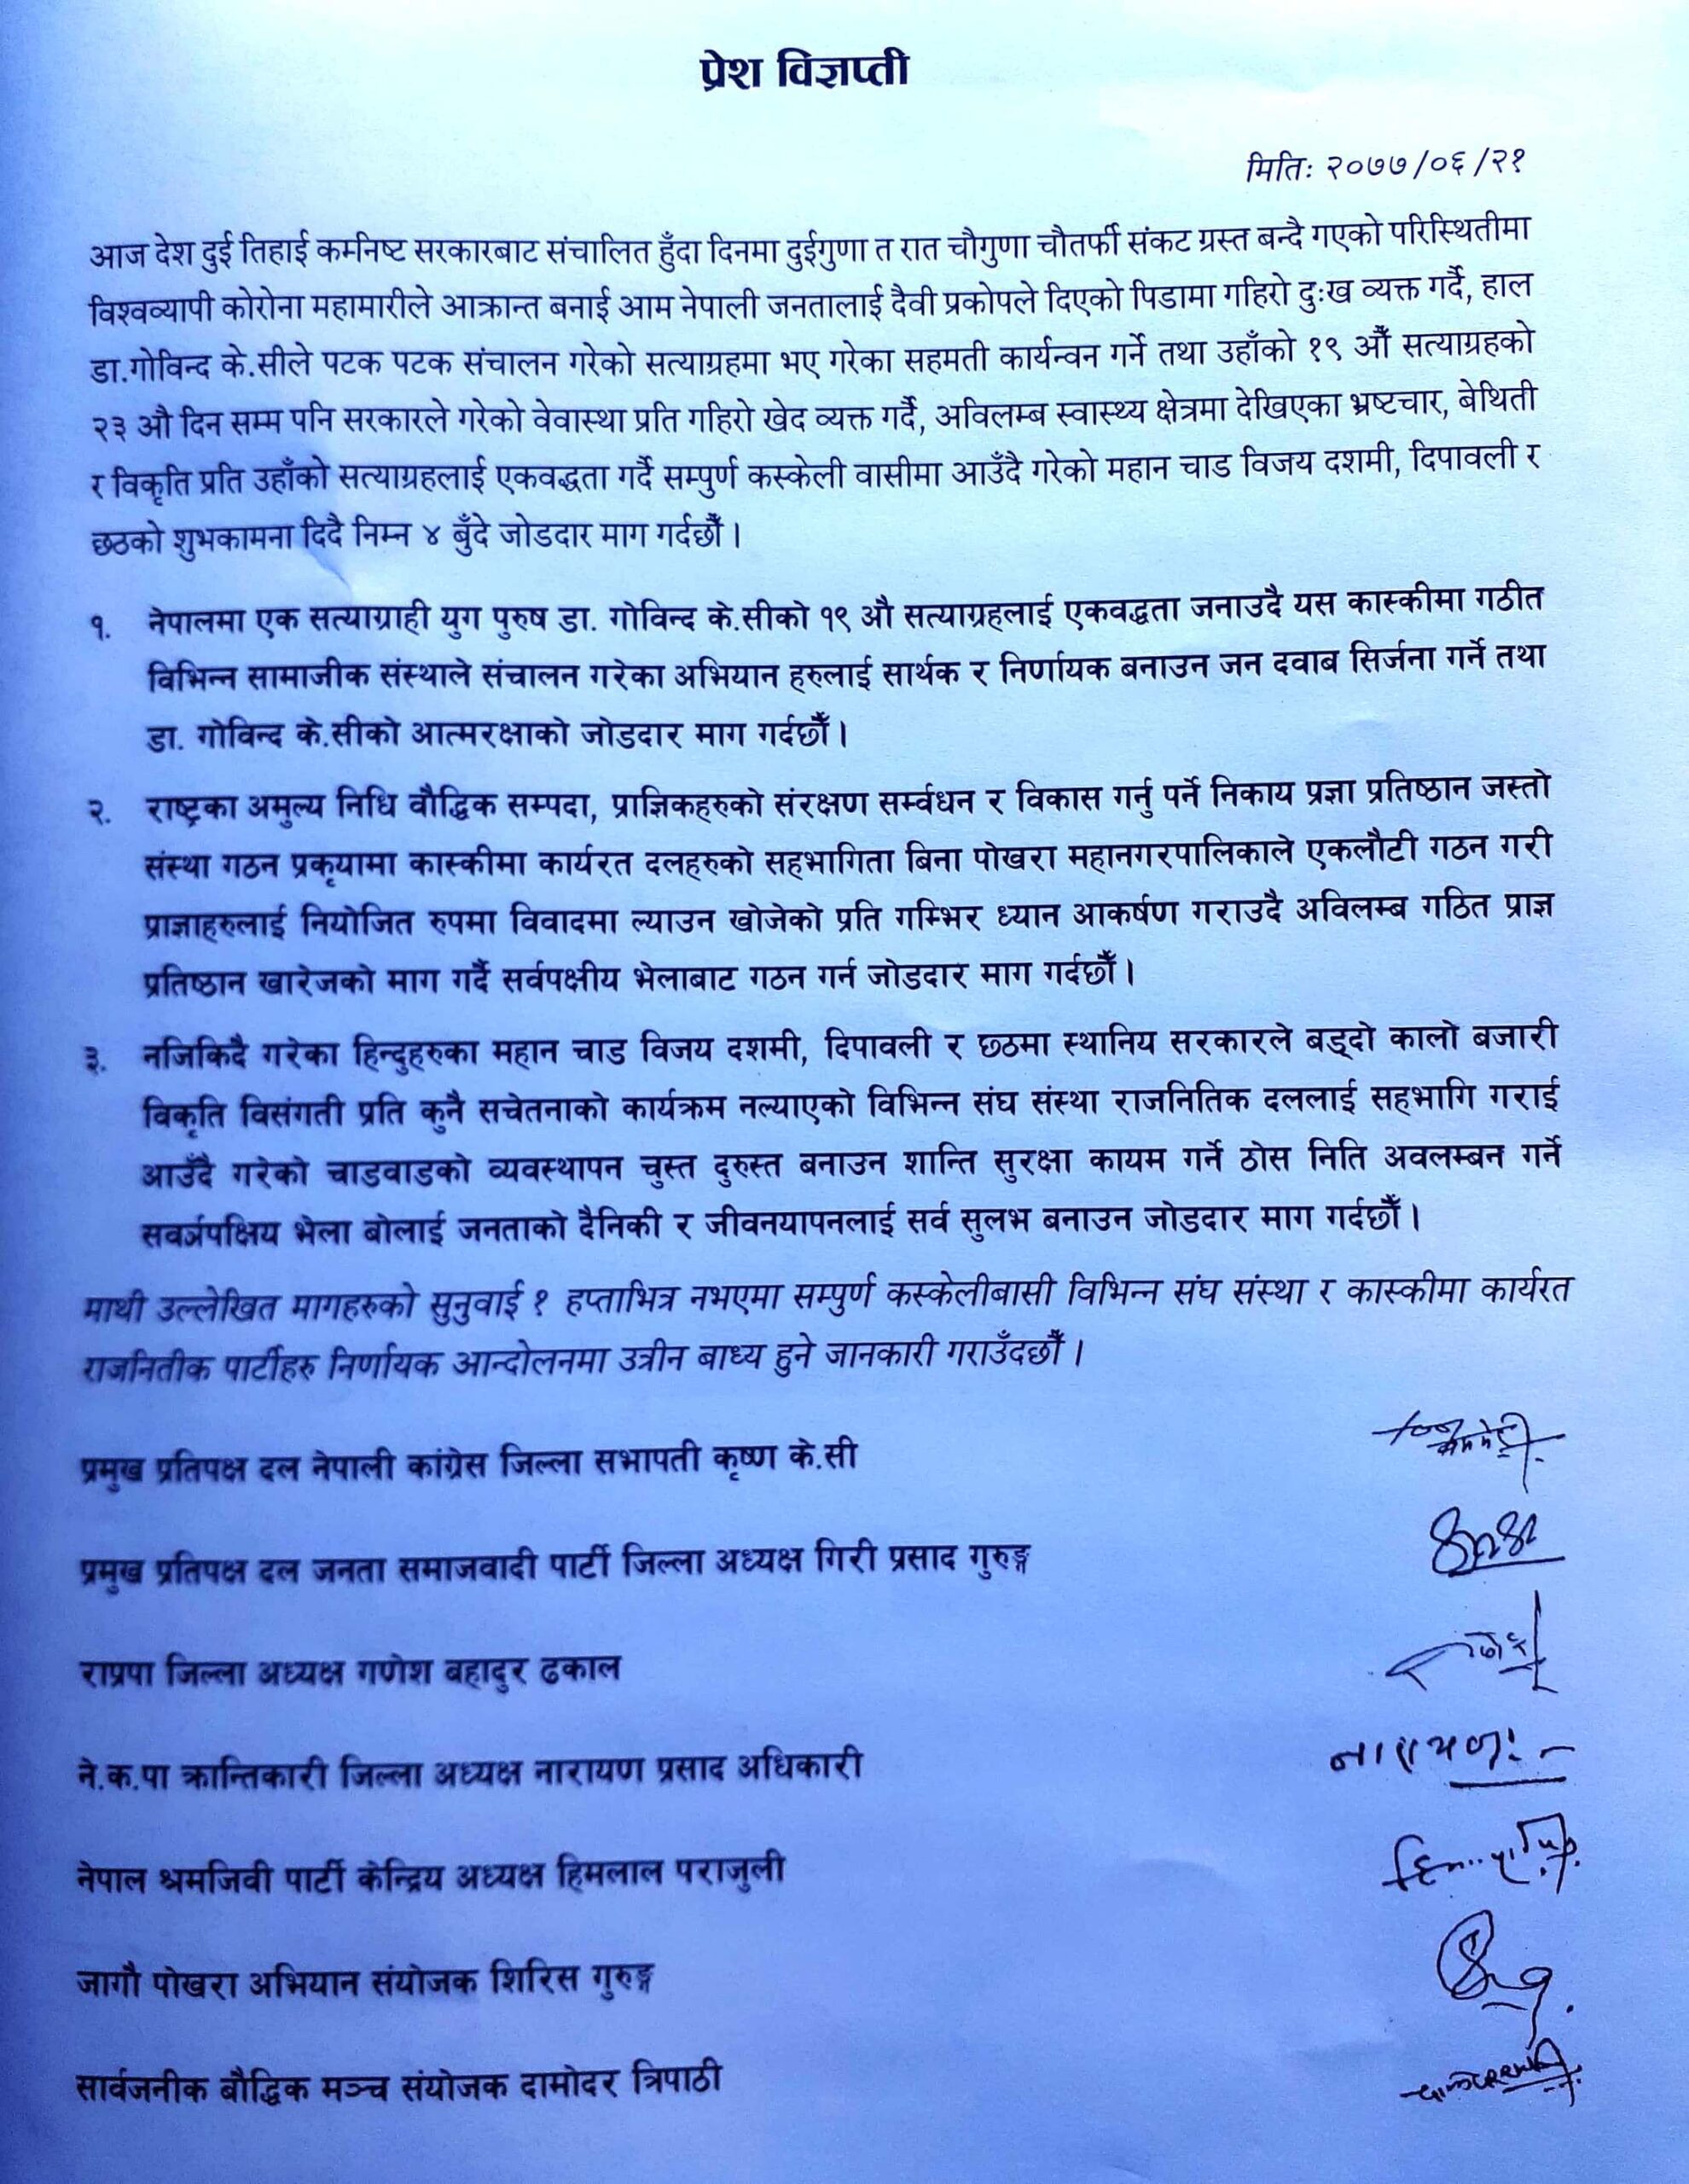 प्रेश विज्ञप्ती
मितिः २०७७/०६/२१
आज देश दुई तिहाई कम्निष्ट सरकारबाट संचालित हुँदा दिनमा दुईगुणा त रात चौगुणा चौतर्फी संकट ग्रस्त बन्दै गएको परिस्थितीमा
विश्वव्यापी कोरोना महामारीले आक्रान्त बनाई आम नेपाली जनतालाई दैवी प्रकोपले दिएको पिडामा गहिरो दुःख व्यक्त गर्दै, हाल
डा.गोविन्द के.सीले पटक पटक संचालन गरेको सत्याग्रहमा भए गरेका सहमती कार्यन्वन गर्ने तथा उहाँको १९ औँ सत्याग्रहको
२३ औ दिन सम्म पनि सरकारले गरेको वेवास्था प्रति गहिरो खेद व्यक्त गर्दै, अविलम्ब स्वास्थ्य क्षेत्रमा देखिएका भ्रष्टचार, बेथिती
र विकृति प्रति उहाँको सत्याग्रहलाई एकवद्धता गर्दै सम्पुर्ण कस्केली वासीमा आउँदै गरेको महान चाड विजय दशमी, दिपावली र
छठको शुभकामना दिदै निम्न ४ बुँदे जोडदार माग गर्दछौँ।
१. नेपालमा एक सत्याग्राही युग पुरुष डा. गोविन्द के.सीको १९ औ सत्याग्रहलाई एकवद्धता जनाउदै यस कास्कीमा गठीत
विभिन्न सामाजीक संस्थाले संचालन गरेका अभियान हरुलाई सार्थक र निर्णायक बनाउन जन दवाब सिर्जना गर्ने तथा
डा. गोविन्द के.सीको आत्मरक्षाको जोडदार माग गर्दछौँ।
२. राष्ट्रका अमुल्य निधि वौद्धिक सम्पदा, प्राज्ञिकहरुको संरक्षण सर्म्वधन र विकास गर्नु पर्ने निकाय प्रज्ञा प्रतिष्ठान जस्तो
संस्था गठन प्रकृयामा कास्कीमा कार्यरत दलहरुको सहभागिता बिना पोखरा महानगरपालिकाले एकलौटी गठन गरी
प्राज्ञाहरुलाई नियोजित रुपमा विवादमा ल्याउन खोजेको प्रति गम्भिर ध्यान आकर्षण गराउदै अविलम्ब गठित प्राज्ञ
प्रतिष्ठान खारेजको माग गर्दै सर्वपक्षीय भेलाबाट गठन गर्न जोडदार माग गर्दछौँ।
३. नजिकिदै गरेका हिन्दुहरुका महान चाड विजय दशमी, दिपावली र छठमा स्थानिय सरकारले बड्दो कालो बजारी
विकृति विसंगती प्रति कुनै सचेतनाको कार्यक्रम नल्याएको विभिन्न संघ संस्था राजनितिक दललाई सहभागि गराई
आउँदै गरेको चाडवाडको व्यवस्थापन चुस्त दुरुस्त बनाउन शान्ति सुरक्षा कायम गर्ने ठोस निति अवलम्बन गर्ने
सर्वपक्षिय भेला बोलाई जनताको दैनिकी र जीवनयापनलाई सर्व सुलभ बनाउन जोडदार माग गर्दछौँ।
माथी उल्लेखित मागहरुको सुनुवाई १ हप्ताभित्र नभएमा सम्पुर्ण कस्केलीबासी विभिन्न संघ संस्था र कास्कीमा कार्यरत
राजनितीक पार्टीहरु निर्णायक आन्दोलनमा उत्रीन बाध्य हुने जानकारी गराउँदछौँ।
प्रमुख प्रतिपक्ष दल नेपाली कांग्रेस जिल्ला सभापती कृष्ण के.सी
प्रमुख प्रतिपक्ष दल जनता समाजवादी पार्टी जिल्ला अध्यक्ष गिरी प्रसाद गुरुङ्ग
राप्रपा जिल्ला अध्यक्ष गणेश बहादुर ढकाल
ने.क.पा क्रान्तिकारी जिल्ला अध्यक्ष नारायण प्रसाद अधिकारी
नारायण:-
नेपाल श्रमजिवी पार्टी केन्द्रिय अध्यक्ष हिमलाल पराजुली
जागौ पोखरा अभियान संयोजक शिरिस गुरुङ्ग
सार्वजनीक बौद्धिक मञ्च संयोजक दामोदर त्रिपाठी